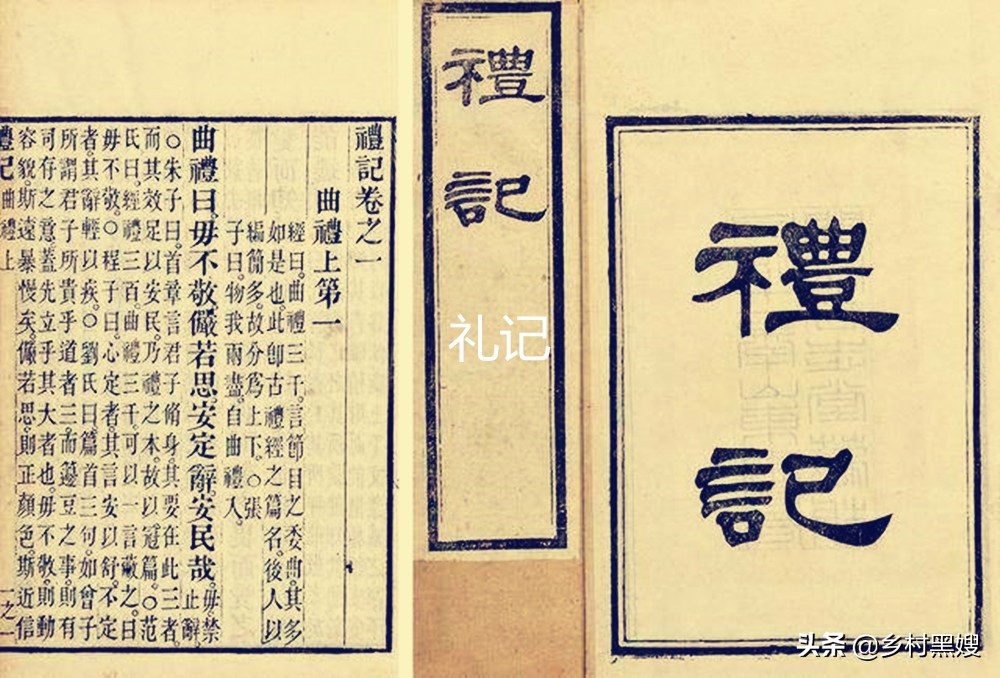 禮記卷之一
曲禮上第一
經曰。曲禮。三千。言節目之委曲。其多
如是也。此卽古禮經之篇名。後人以
編簡多。故分爲上下。○張
子曰。物我兩盡。自曲禮入。
曲禮曰。毋不敬。儼若思。安定辭。安民哉。毋禁止辭。
○朱子曰。首章言君子脩身。其要在此三者。
而其效足以安民。乃禮之本。故以冠篇。○范
氏曰。經禮三百曲禮三千。可以一言蔽之。曰
毋不敬。○程子曰。心定者。其言安以舒。不定
者。其辭輕以疾。○劉氏曰。篇首三句。如曾子
所謂君子所貴乎道者三。而籩豆之事。則有
司存之意。蓋先立乎其大者也。毋不敬。則動
容貌。斯遠暴慢矣。儼若思。則正顏色。斯近信
禮記 曲禮上 一之一
禮記
礼记
禮記
头条 @乡村黑嫂